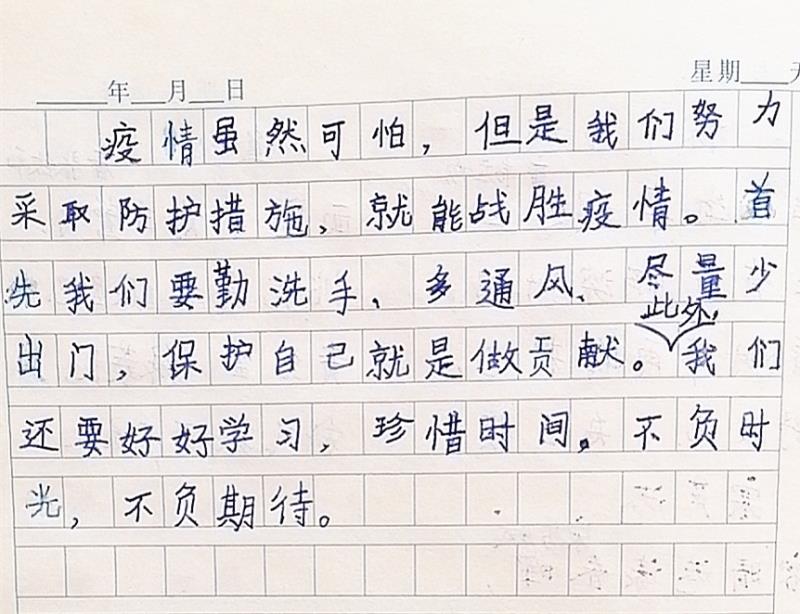 ____年___月___日 星期___天
疫情虽然可怕，但是我们努力
采取防护措施，就能战胜疫情。首
先我们要勤洗手、多通风、尽量少
出门，保护自己就是做贡献。此外，我们
还要好好学习，珍惜时间。不负时
光，不负期待。